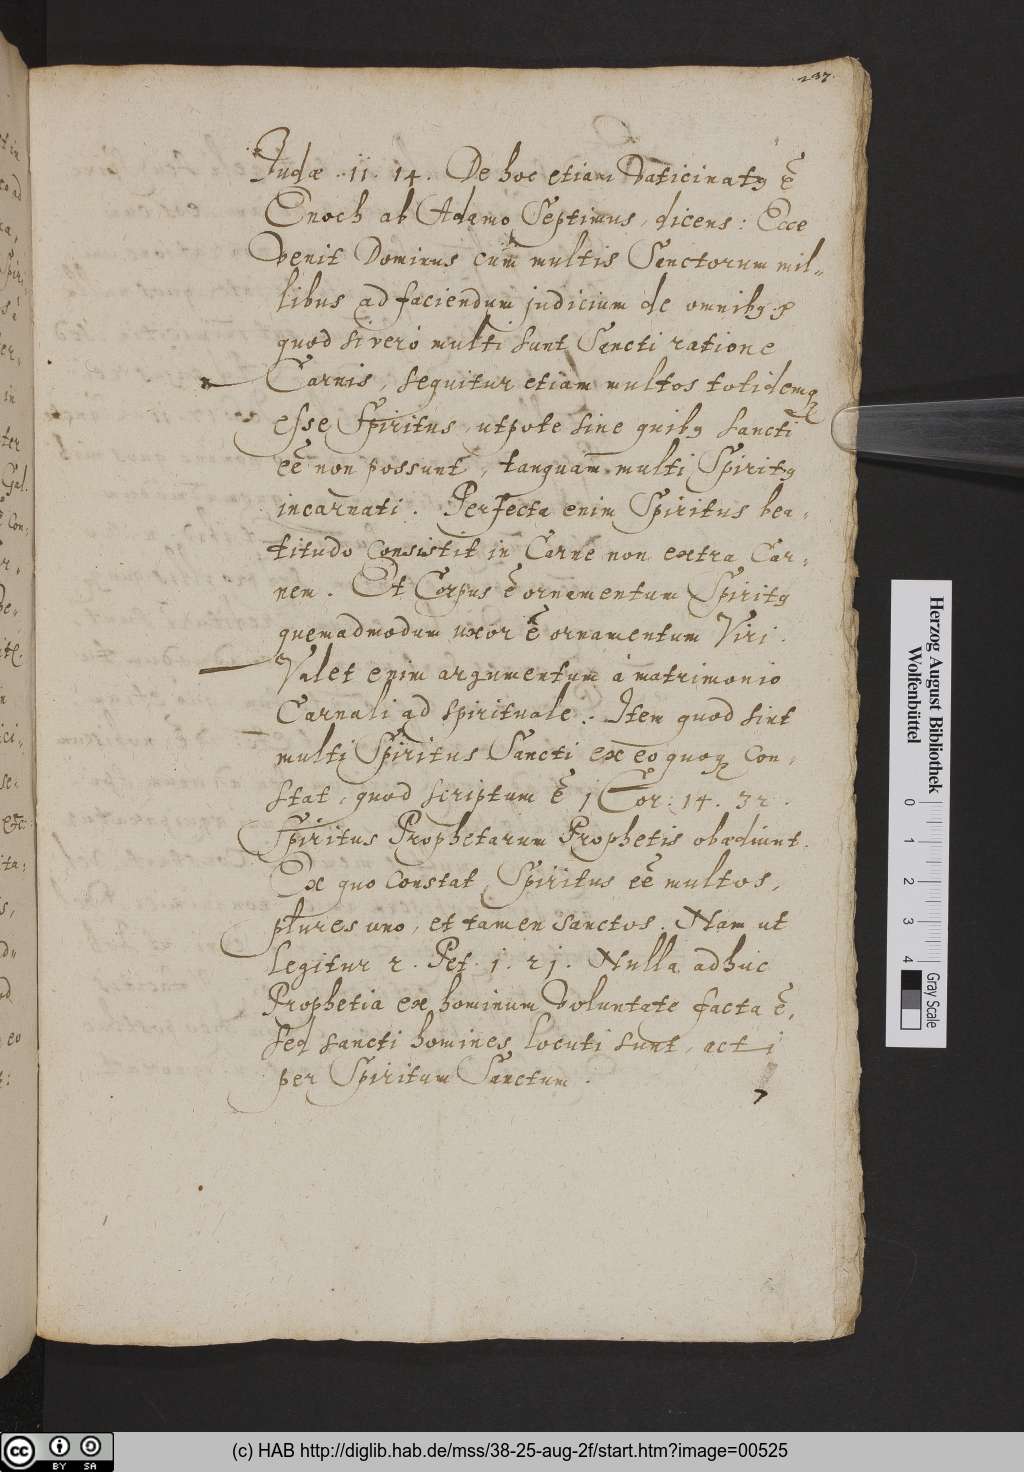 237.
Judæ . 11. 14. De hoc etiam vaticinatꝰ ē
Enoch ab Adamo Septimus, dicens: Ecce
venit Dominus cum multis Sanctorum mil-
libus ad faciendum judicium de omnibꝰ
quod si vero multi sunt Sancti ratione
Carnis, sequitur etiam multos totidemq̃
esse Spiritus, utpote sine quibꝰ sancti
eē non possunt, tanquam multi Spiritꝰ
incarnati. Perfecta enim Spiritus bea-
titudo consistit in Carne non extra Car-
nem. Et Corpus ē ornamentum Spiritꝰ
quemadmodum uxor ē ornamentum Viri.
Valet enim argumentum à matrimonio
Carnali ad spirituale. Item quod sint
multi Spiritus Sancti ex eo quoq̃ con-
stat, quod scriptum ē 1 Cor: 14. 32.
Spiritus Prophetarum Prophetis obœdiunt.
Ex quo constat, Spiritus eē multos,
plures uno, et tamen sanctos. Nam ut
legitur 2. Pet. 1. 21. Nulla adhuc
Prophetia ex hominum voluntate facta ē,
sed sancti homines locuti sunt, acti
per Spiritum Sanctum.
Herzog August Bibliothek
Wolfenbüttel
0 1 2 3 4
Gray Scale
CC BY SA
(c) HAB http://diglib.hab.de/mss/38-25-aug-2f/start.htm?image=00525